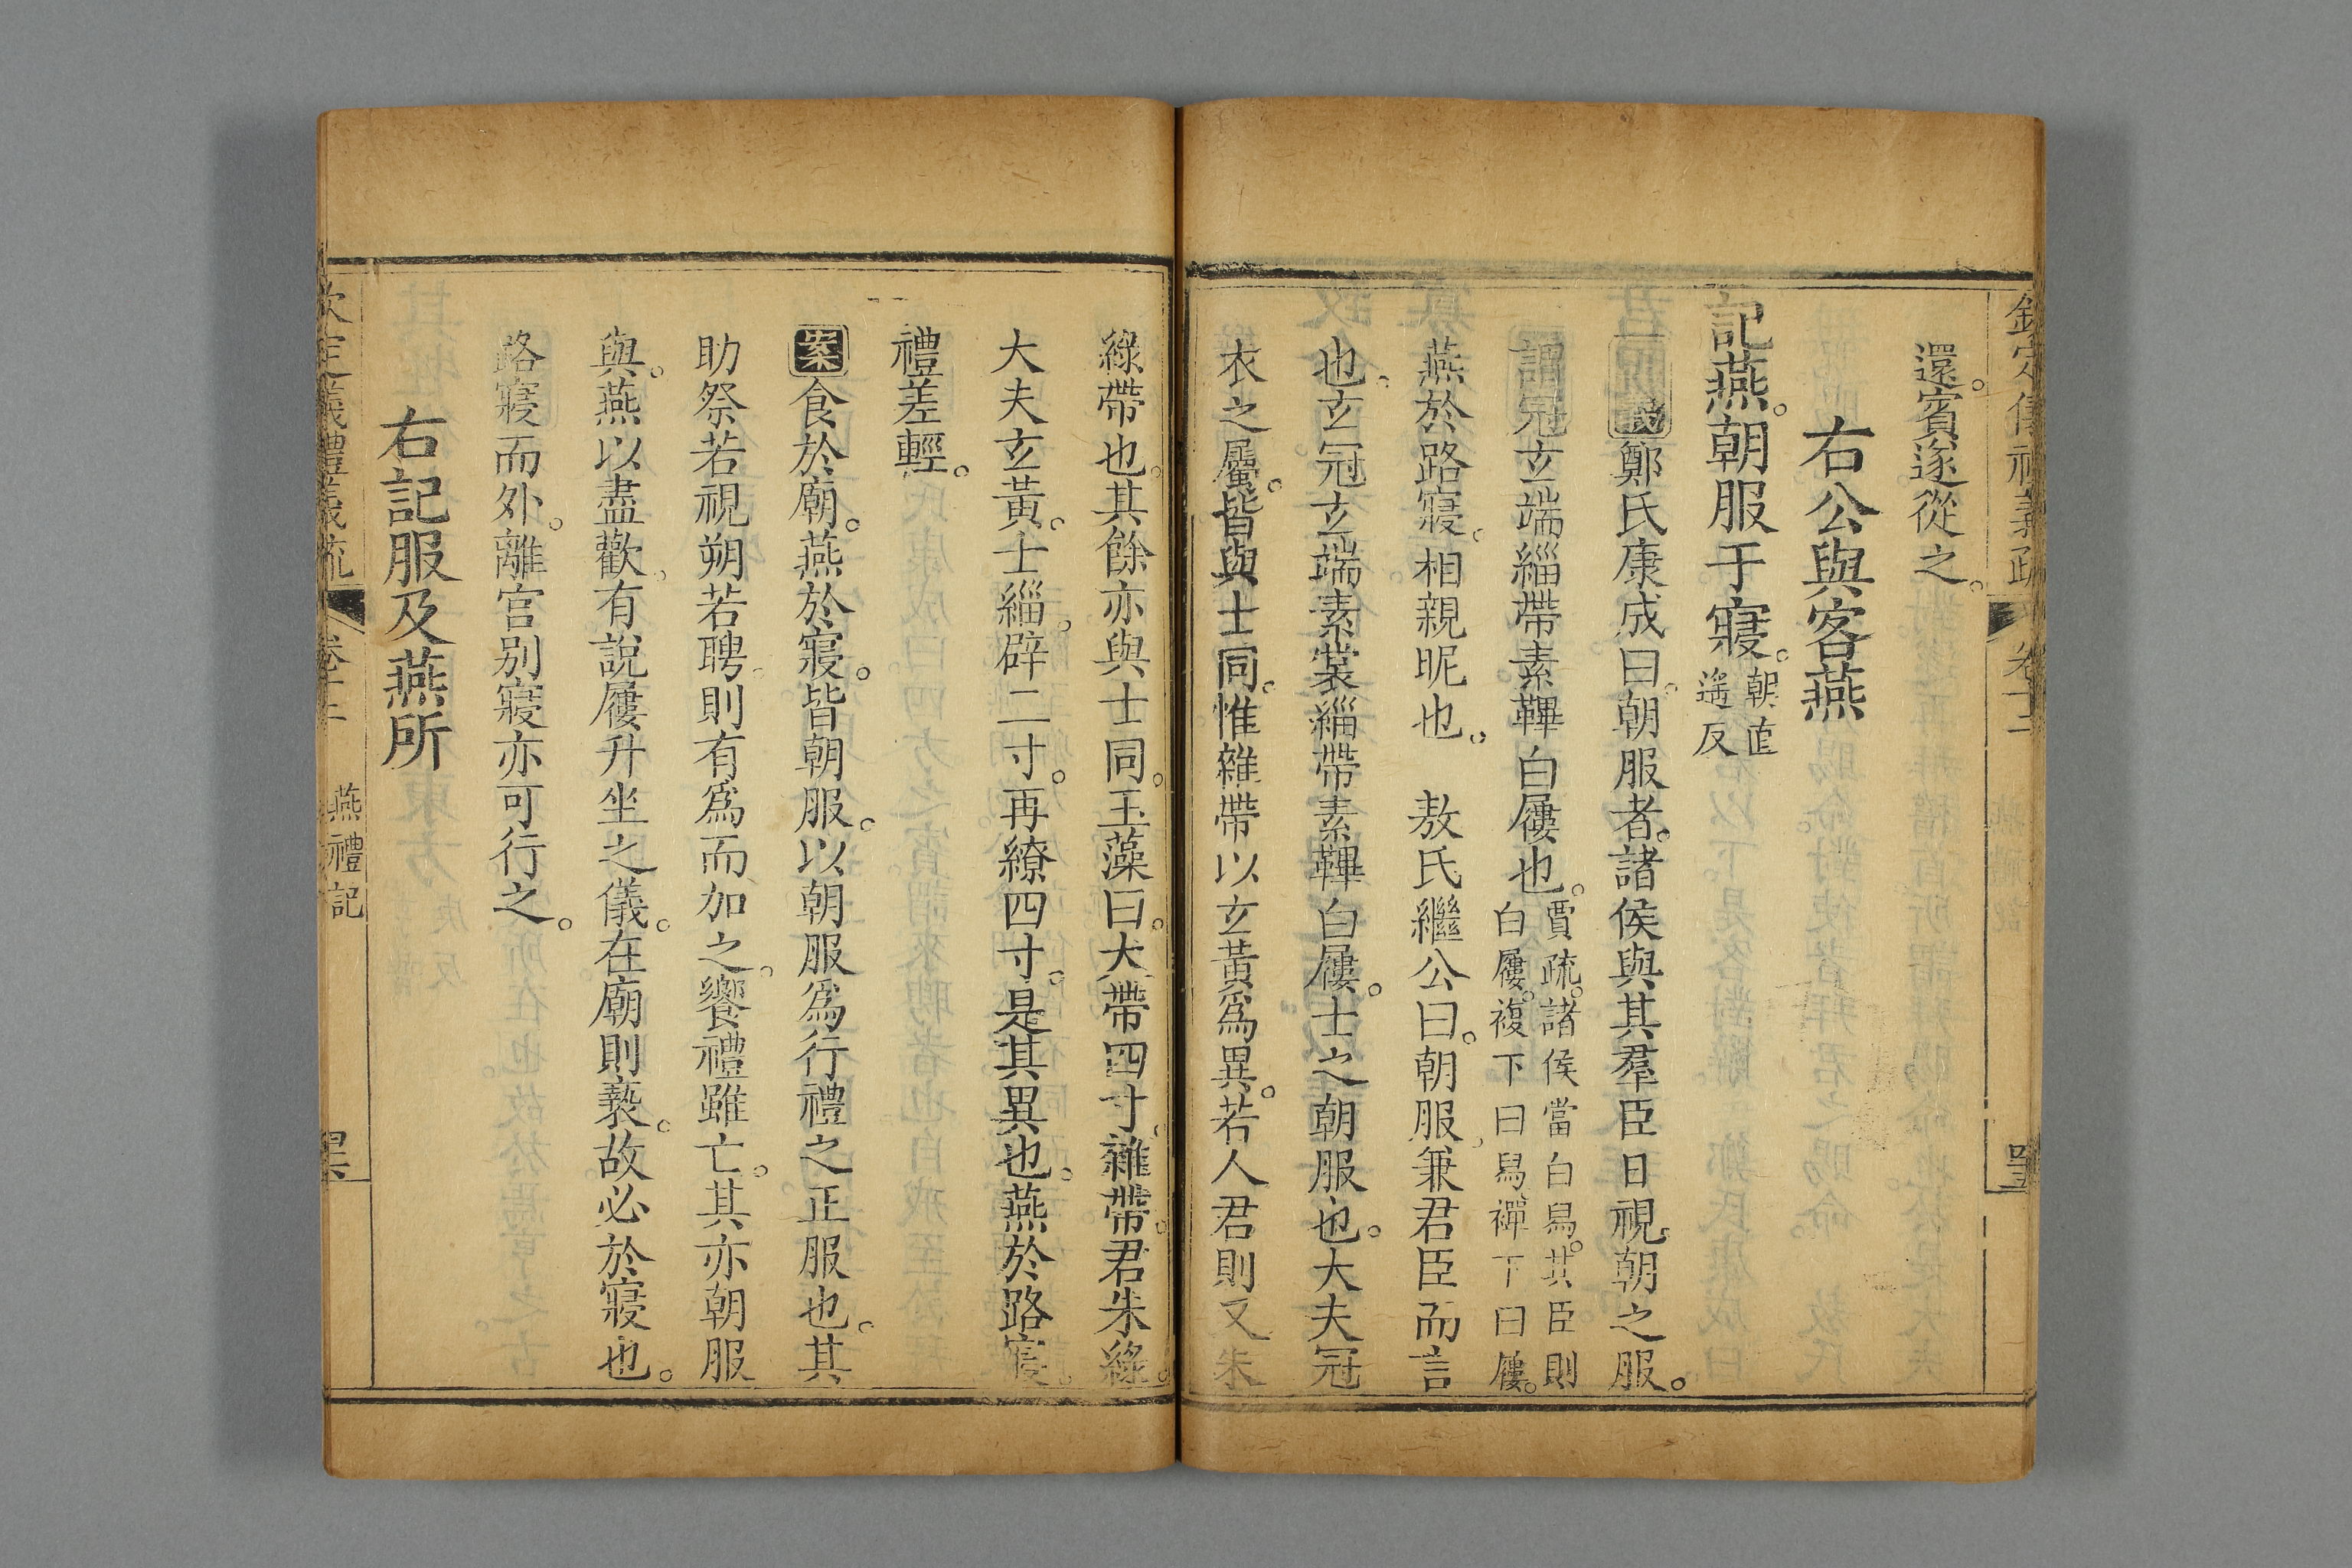 還。賓遂從之。
右公與客燕
記燕。朝服于寢。朝直遙反
鄭氏康成曰。朝服者。諸侯與其羣臣日視朝之服。
謂冠玄端緇帶素鞸白屨也。賈疏。諸侯當白舄。其臣則白屨。複下曰舄。襌下曰屨。
燕於路寢。相親昵也。 敖氏繼公曰。朝服。兼君臣而言
也。玄冠玄端素裳緇帶素鞸白屨。士之朝服也。大夫冠
衣之屬。皆與士同。惟雜帶以玄黃爲異。若人君則又朱
綠帶也。其餘亦與士同。玉藻曰。大帶四寸。雜帶。君朱綠。
大夫玄黃。士緇辟二寸。再繚四寸。是其異也。燕於路寢。
禮差輕。
案食於廟。燕於寢。皆朝服。以朝服爲行禮之正服也。其
助祭若視朔若聘。則有爲而加之。饗禮雖亡。其亦朝服
與。燕以盡歡。有說屨升坐之儀。在廟則褻。故必於寢也。
路寢而外。離宮別寢亦可行之。
右記服及燕所
欽定儀禮義疏 卷十二 燕禮記